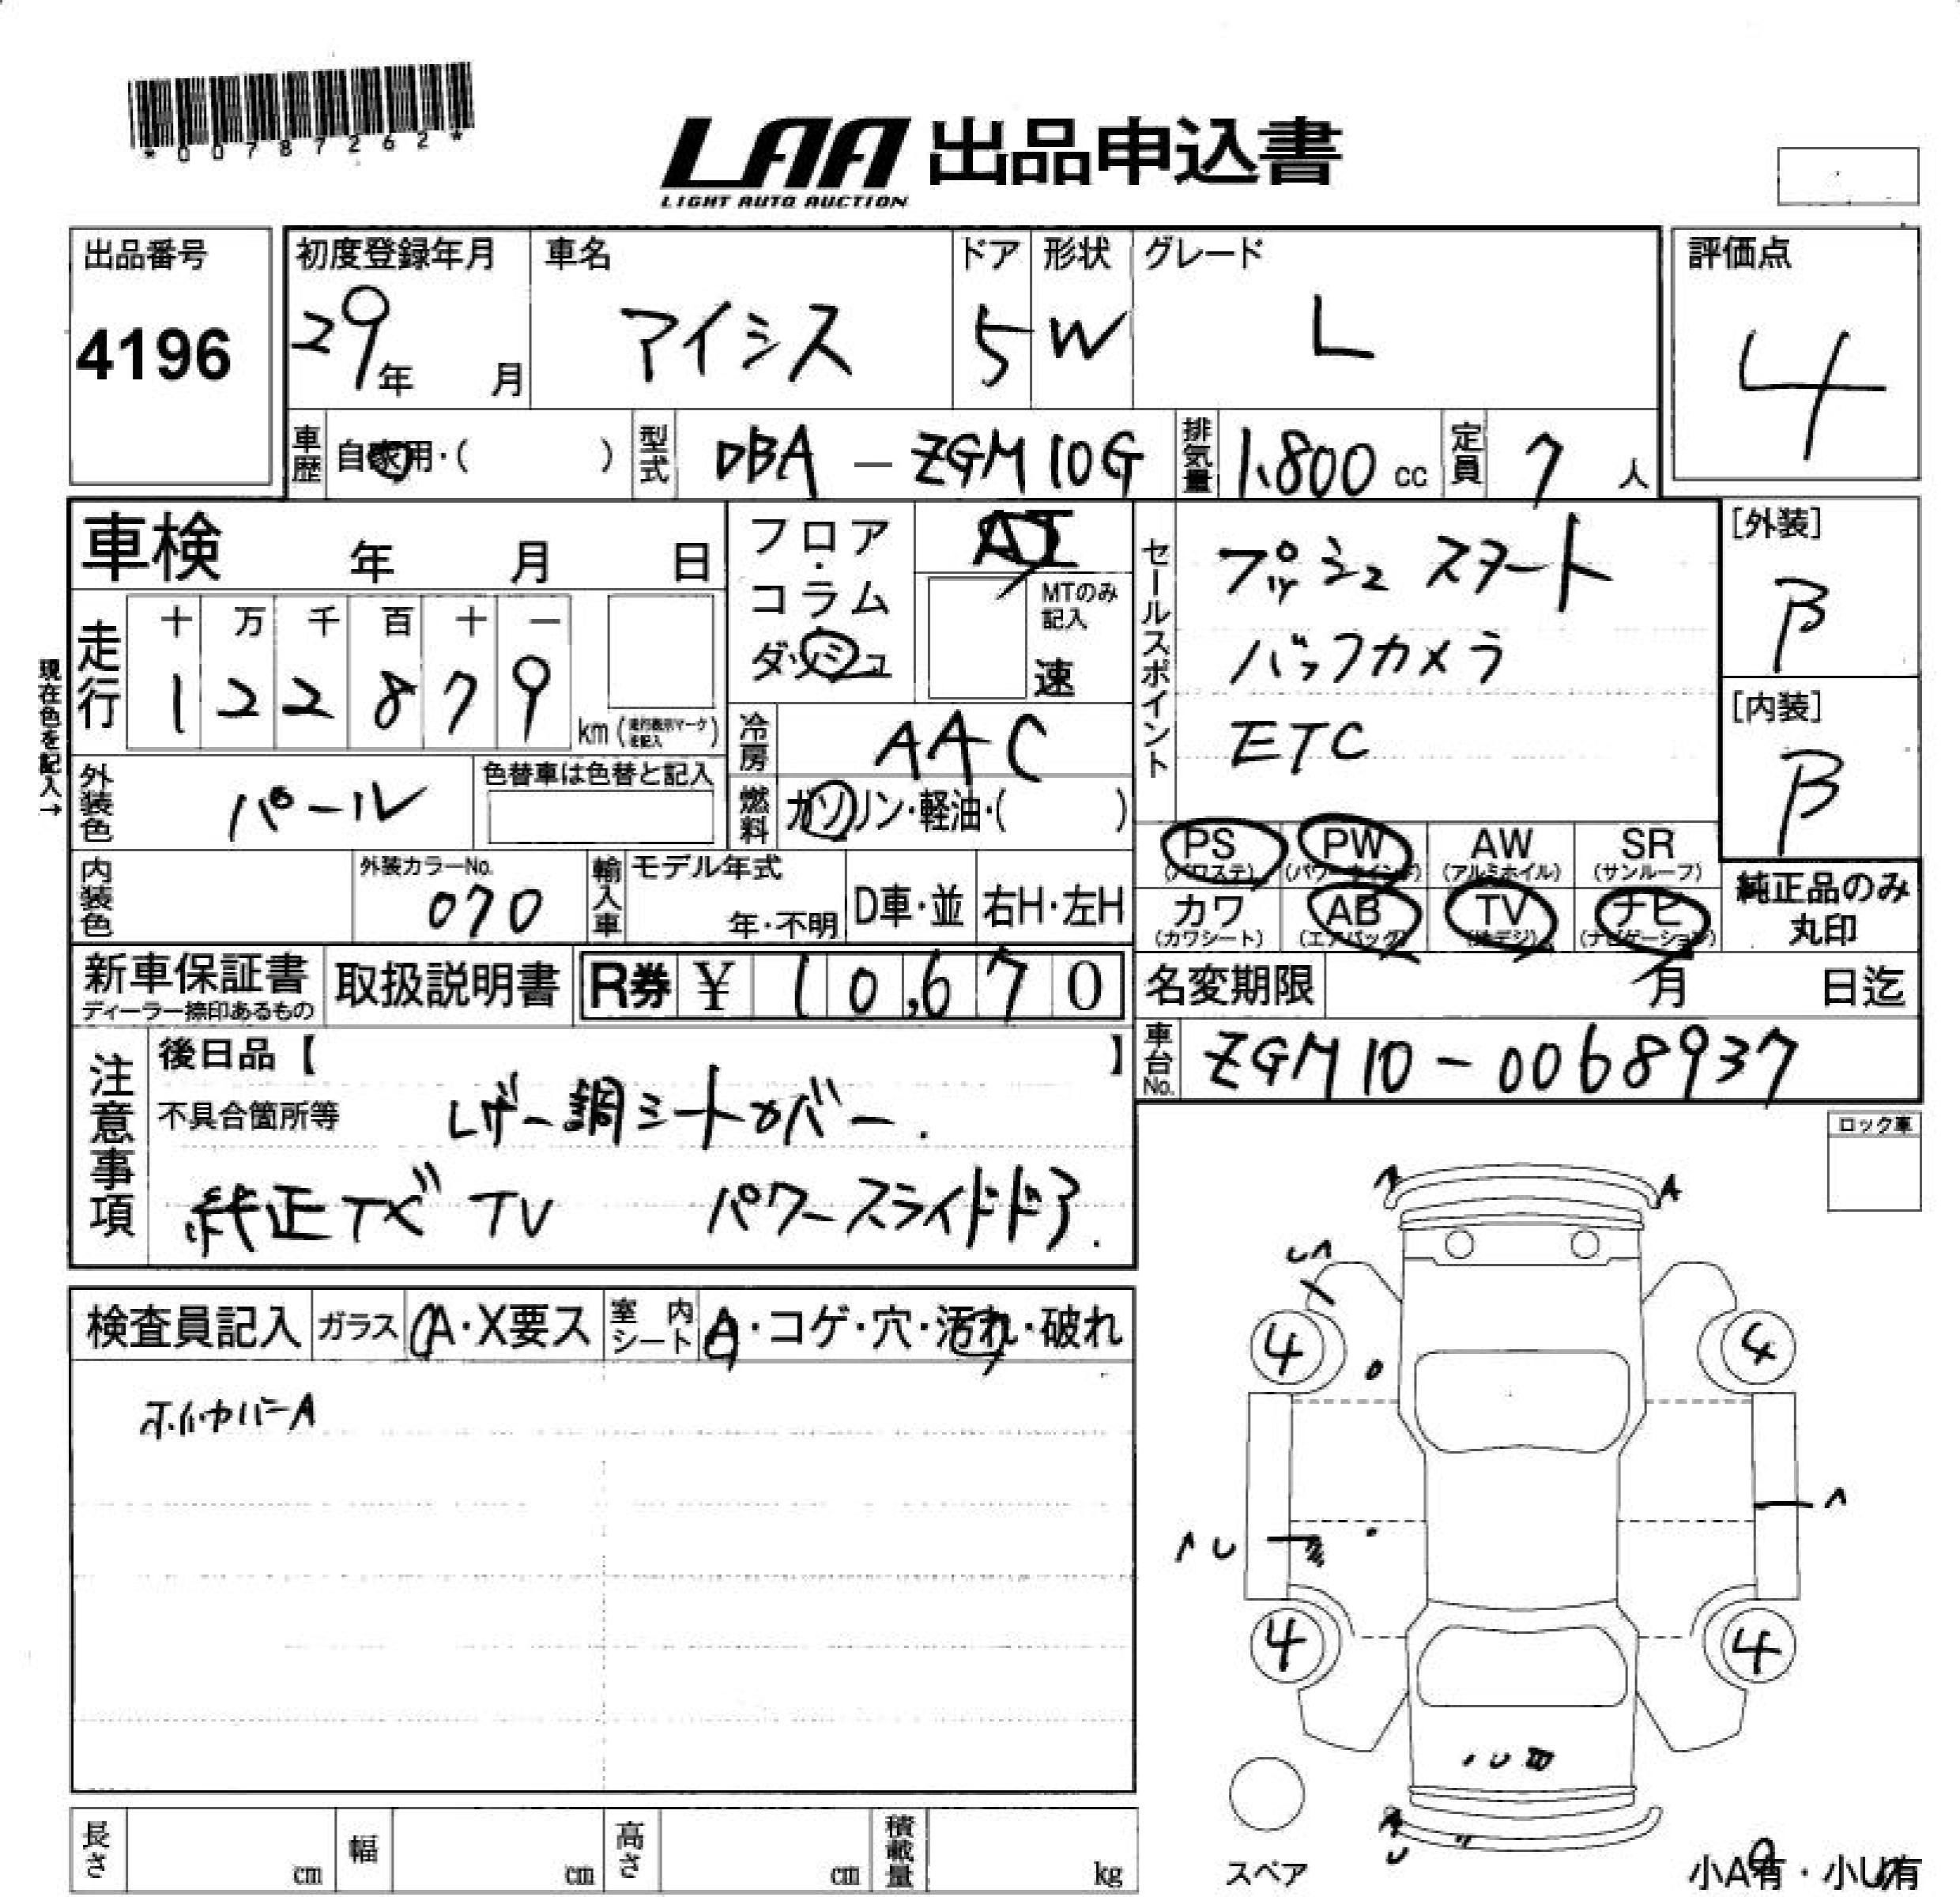 *00787262*
LAA 出品申込書
LIGHT AUTO AUCTION
出品番号
4196
初度登録年月
29年 月
車名
アイシス
ドア
5
形状
W
グレード
L
評価点
4
車歴 自家用・( )
型式 DBA-ZGM10G
排気量 1,800 cc
定員 7 人
車検 年 月 日
フロア・コラム・ダッシュ
AT
MTのみ記入
速
セールスポイント
プッシュスタート
バックカメラ
ETC
[外装]
B
[内装]
B
現在色を記入→
走行
十 万 千 百 十 一
1 2 2 8 7 9
km(走行表示マーク を記入)
冷房 AAC
外装色 パール
色替車は色替と記入
燃料 ガソリン・軽油・( )
PS (パワステ)
PW (パワーウインド)
AW (アルミホイル)
SR (サンルーフ)
カワ (カワシート)
AB (エアバック)
TV (地デジ)
ナビ (ナビゲーション)
純正品のみ丸印
内装色
外装カラーNo.
070
輸入車
モデル年式
年・不明
D車・並
右H・左H
新車保証書
ディーラー捺印あるもの
取扱説明書
R券 ¥ 10,670
名変期限 月 日迄
車台No. ZGM10-0068937
注意事項
後日品【 】
不具合箇所等 レザー調シートカバー.
純正ナビ TV パワースライドドア.
ロック車
検査員記入
ガラス A・X要ス
室内シート A・コゲ・穴・汚れ・破れ
ホイルカバーA
A
U A
4
4
A U
4
4
スペア
小A有・小U有
長さ cm
幅 cm
高さ cm
積載量 kg